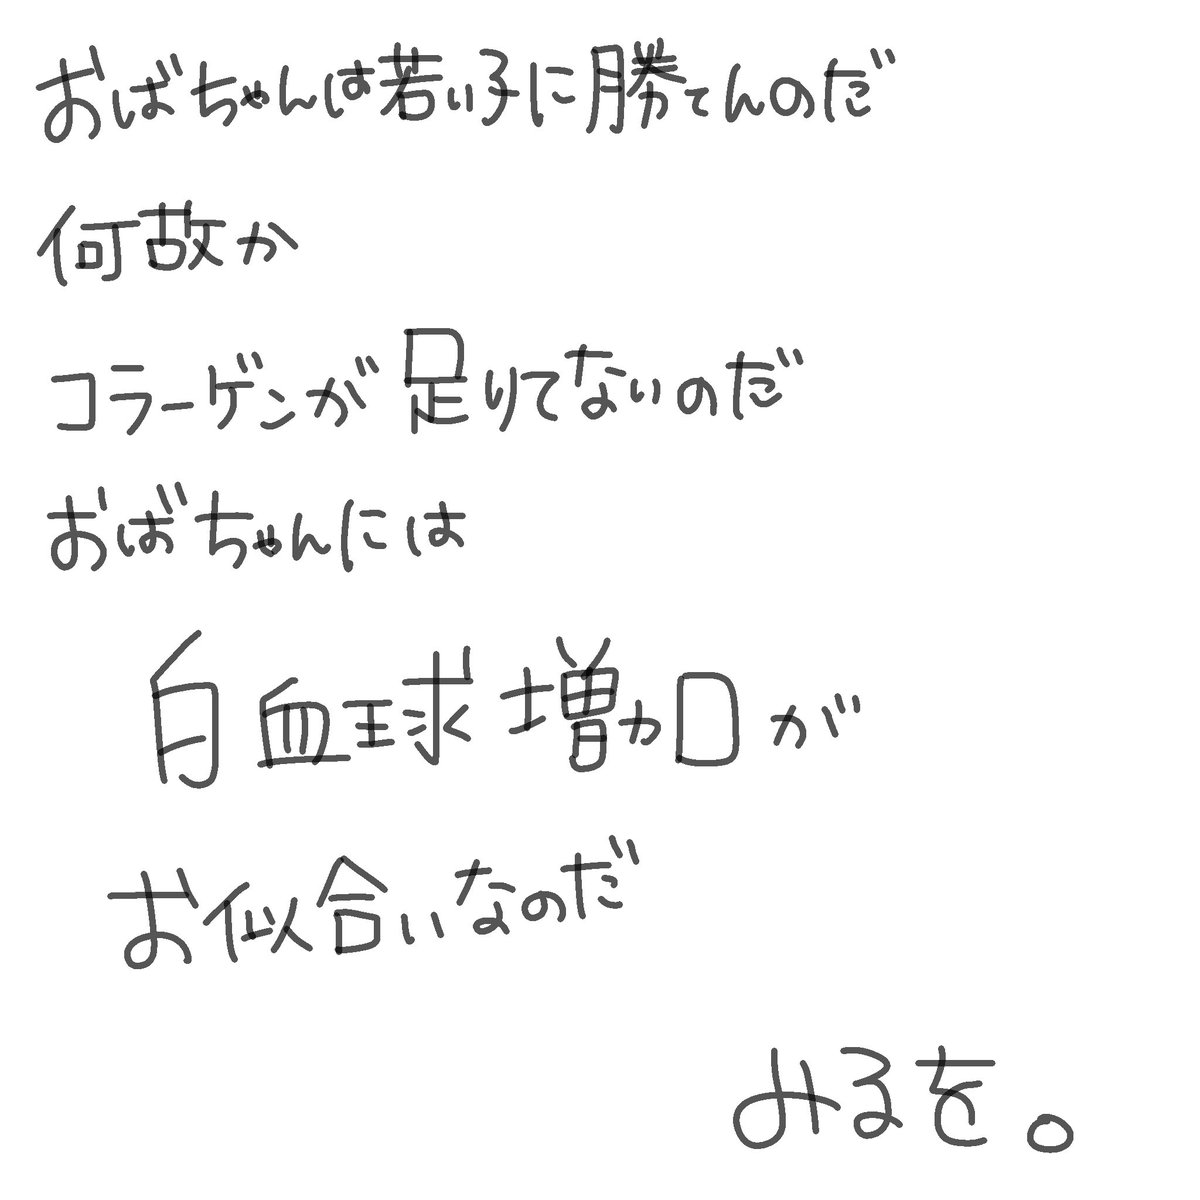 おばちゃんは若い子に勝てんのだ
何故か
コラーゲンが足りてないのだ
おばちゃんには
白血球増加が
お似合いなのだ
みるを。